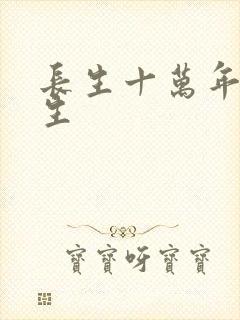 長生十萬年
生
寶寶呀寶寶